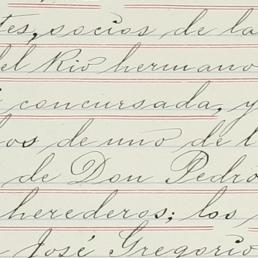 tes, socios de la
el Rio hermano
concursada, y
os de uno de l
de Don Pedro
herederos; los
José Gregorio